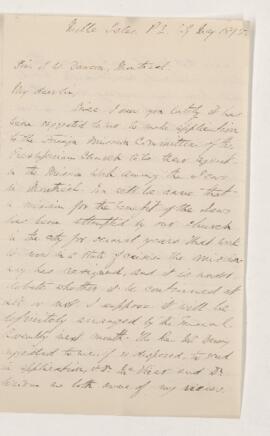 Mille Isles, P.Q. 27 May 1892
Sir J. W. Dawson, Montreal.
My dear Sir,
Since I saw you lately it has
been suggested to me to make application
to the Foreign Mission Committee of the
Presbyterian Church to be their agent
in the Mission work among the Jews
in Montreal. You will be aware that
a mission for the benefit of the Jews
has been attempted by our church
in the city for several years. That work
is now in a state of crisis the mission-
ary has resigned, and it is under
debate whether it be continued at
all or not. I suppose it will be
definitely arranged by the General
Assembly next month. The
suggested to me if so disposed, to send
in application, & Dr. and Dr.
are both aware of my views.